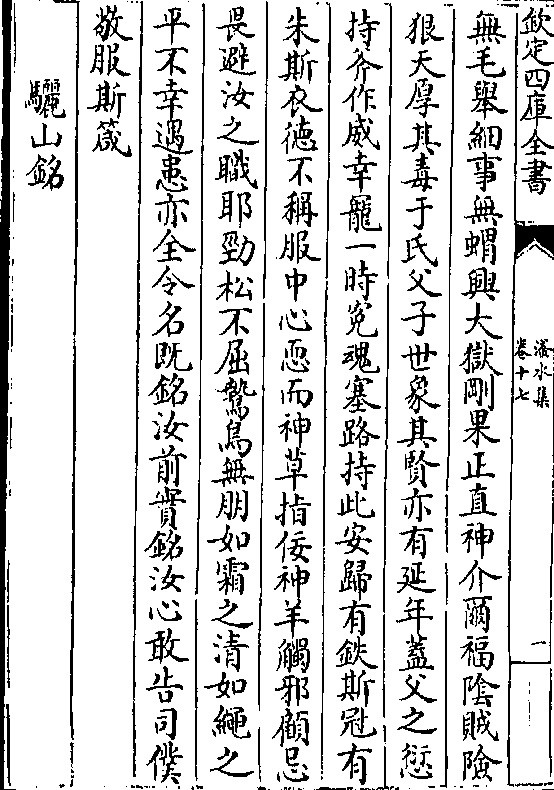 欽定四庫全書
潏水集
卷十七
一
無毛舉細事無蝟興大獄剛果正直神介爾福陰賊險
狠天厚其毒于氏父子世象其賢亦有延年蓋父之愆
持斧作威幸寵一時寃魂塞路持此安歸有鉄斯冠有
朱斯衣徳不稱服中心恧而神草指佞神羊觸邪顧忌
畏避汝之職耶勁松不屈鷙鳥無朋如霜之清如繩之
平不幸遇患亦全令名既銘汝前實銘汝心敢告司僕
敬服斯箴
驪山銘